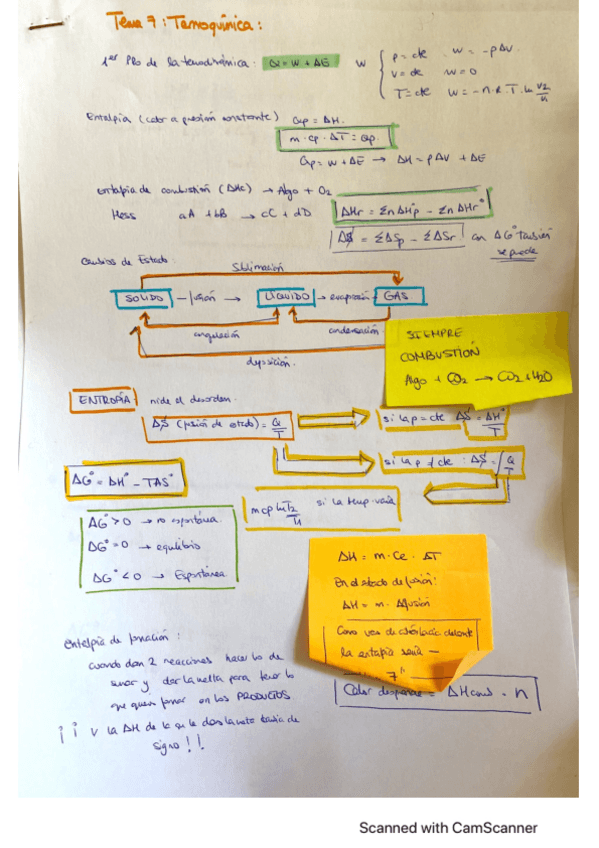 Tema 7: Termoquímica:
1er Ppo de la termodinámica: Q = W + ΔE
W
p = cte W = -pΔV.
V = cte W = 0
T = cte W = -n·R·T·Ln V2/V1
Entalpía (calor a presión constante) Qp = ΔH.
m·cp·ΔT = Qp.
Qp = W + ΔE → ΔH = pΔV + ΔE
Entalpia de combustión (ΔHc) → Algo + O2
Hess aA + bB → cC + dD
ΔHr = Σn ΔHp° - Σn ΔHr°
ΔS° = ΣΔSp - ΣΔSr. con ΔG° también
se puede
Cambios de Estado:
sublimación
SOLIDO - fusión → LÍQUIDO → evaporación GAS
congelación condensación
deposición.
SIEMPRE
COMBUSTIÓN
Algo + O2 → CO2 + H2O
ENTROPÍA mide el desorden.
ΔS° (fusión de estado) = Q/T
si la p = cte ΔS° = ΔH°/T
si la p ≠ cte: ΔS° = ∫ Q/T
ΔG° = ΔH° - TΔS°
m cp Ln T2/T1 si la temp varía
ΔG° > 0 → no espontánea.
ΔG° = 0 → equilibrio
ΔG° < 0 → Espontánea
ΔH = m·Ce·ΔT
En el estado de fusión:
ΔH = m·Δfusión
Como va de
la entalpia sería —
Calor = ΔHcomb · n
Entalpía de formación:
cuando dan 2 reacciones hacer lo de
sumar y dar la vuelta para tener lo
que quieres formar en los PRODUCTOS
¡¡ y la ΔH de la que le das la vuelta cambia de
signo!!
Scanned with CamScanner